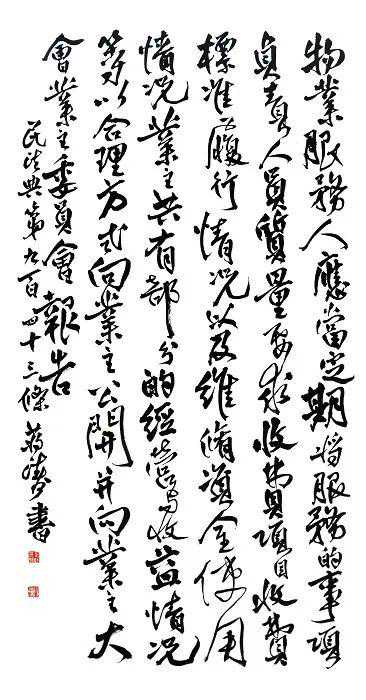 物業服務人應當定期将服務的事項
負責人員質量要求收費項目收費
標准履行情况以及維脩資金使用
情况業主共有部分的經營与收益情况
等以合理方式向業主公開并向業主大
會業主委員會報告
民法典第九百四十三條 蒋書